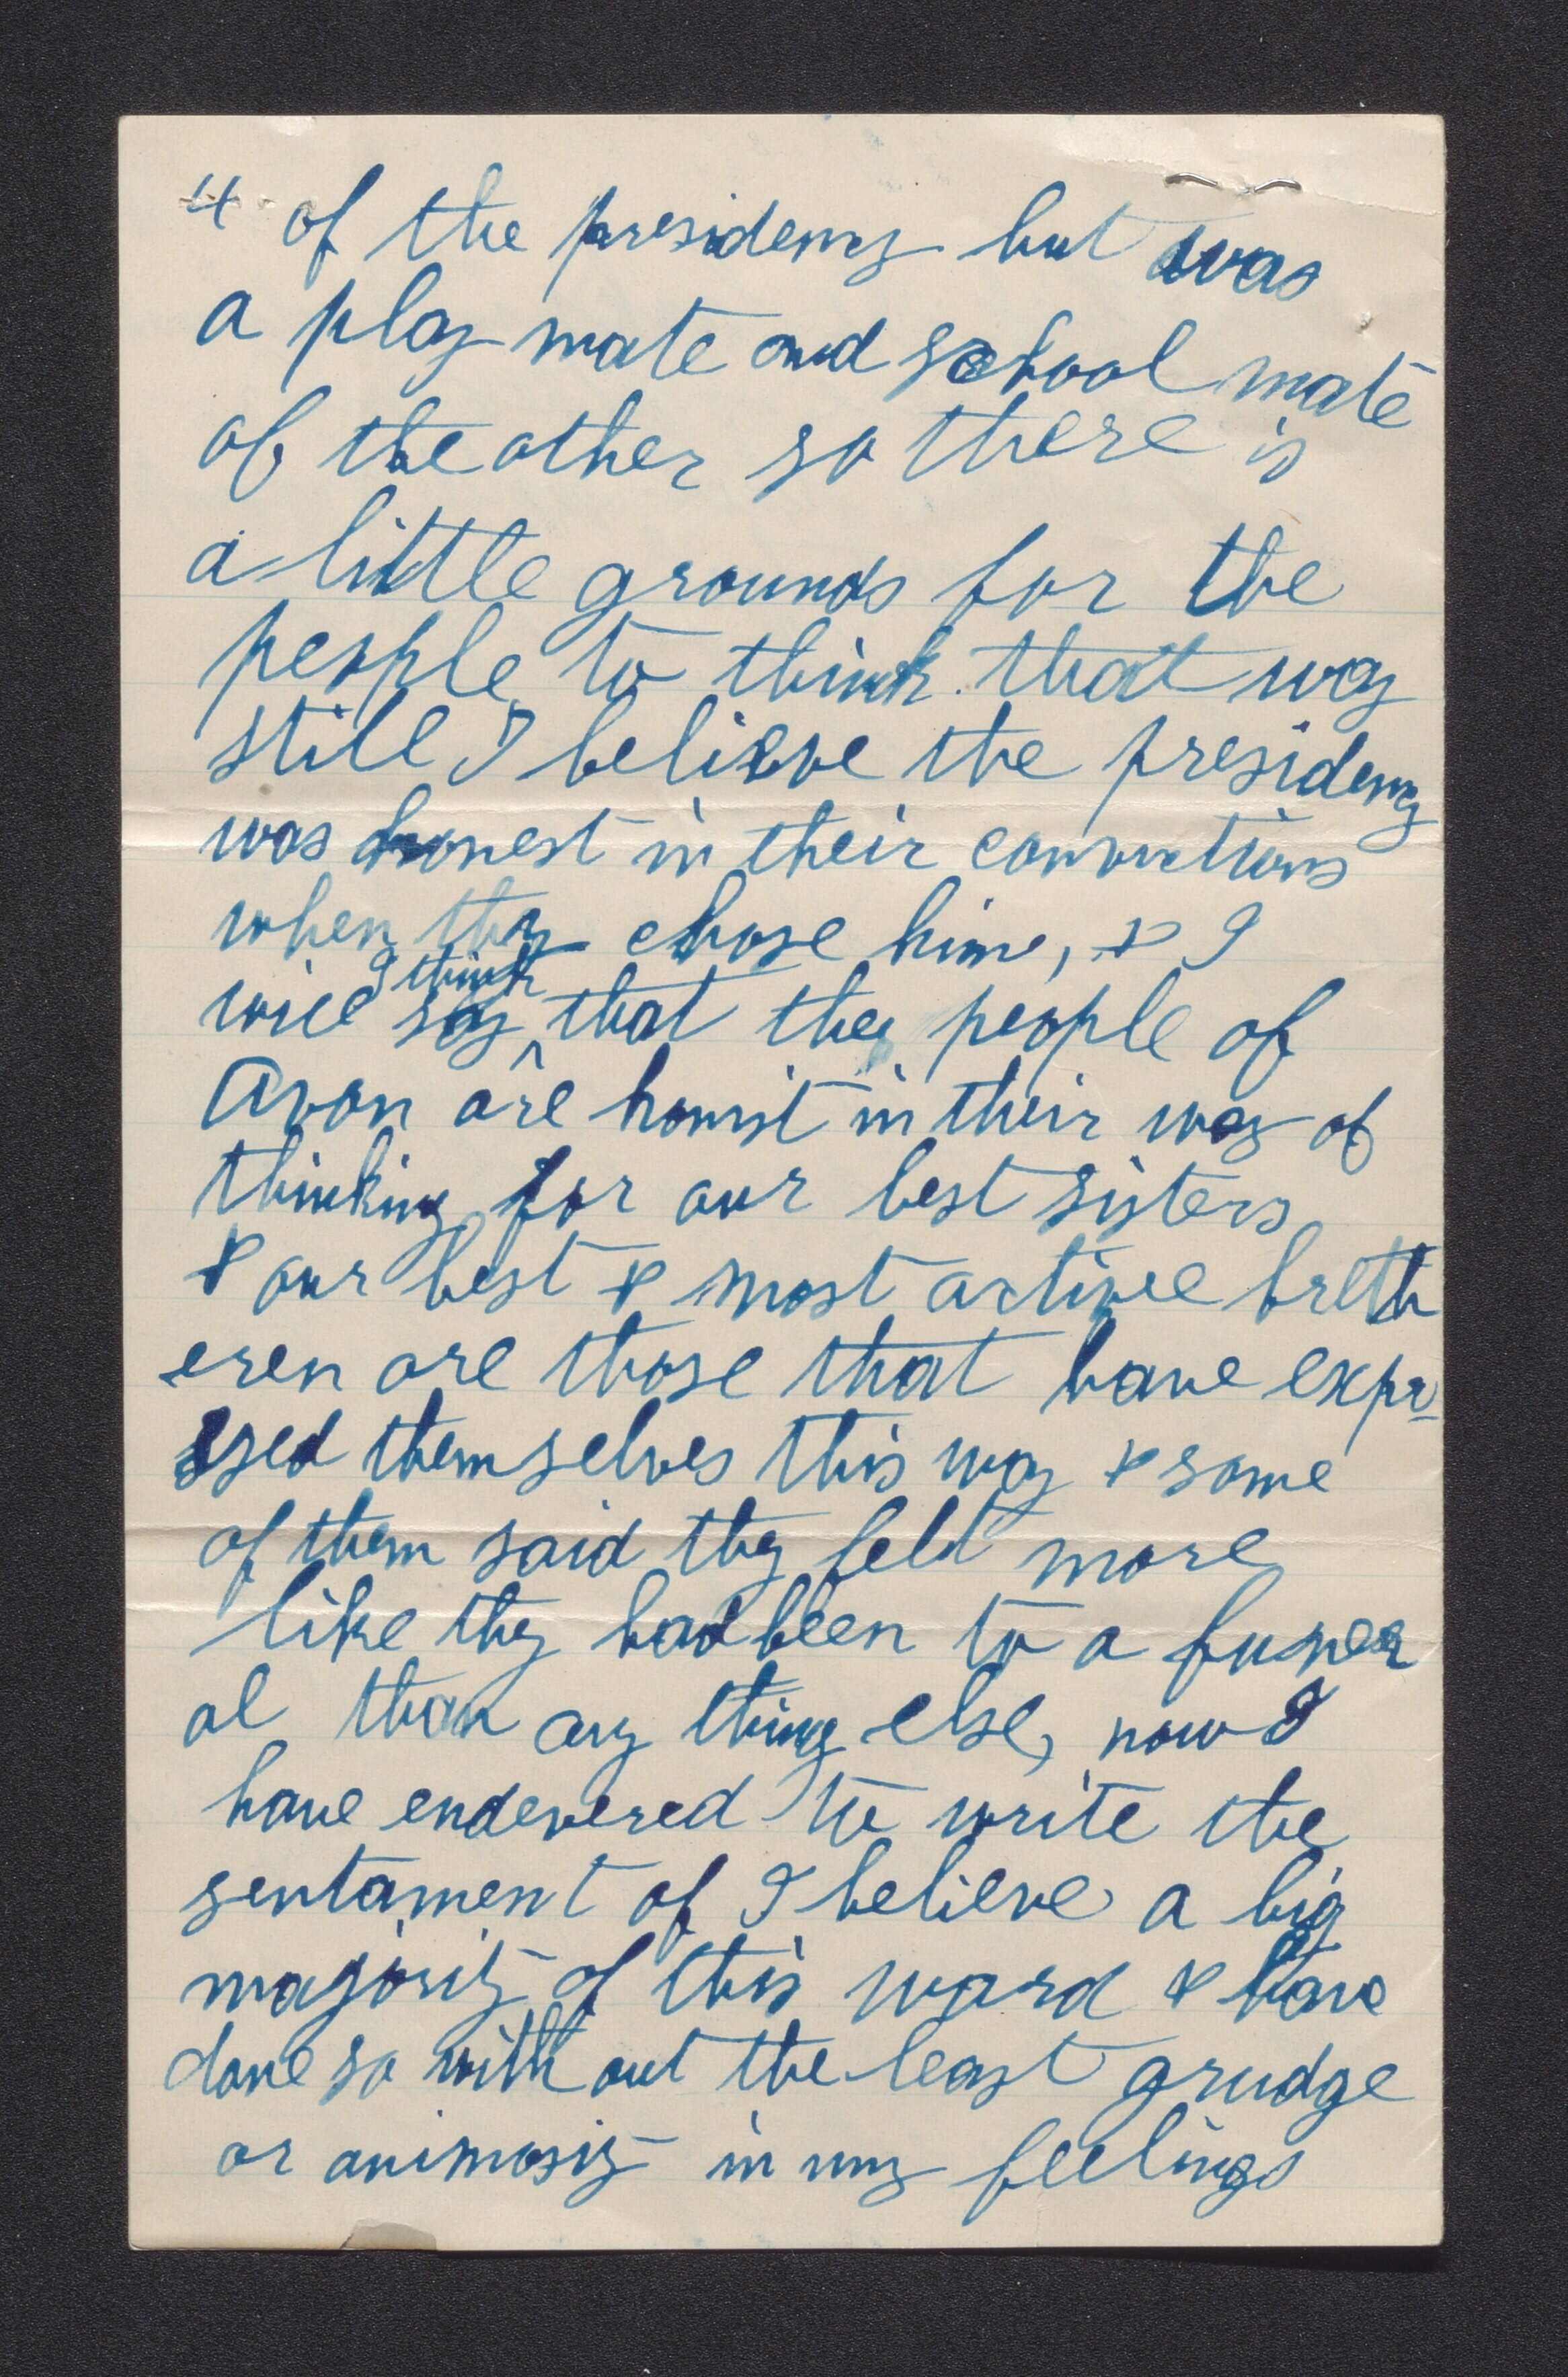 4 of the presidency but was
a play mate and school mate
of the other so there is
a little grounds for the
people to think that way
still I believe the presidency
was honest in their convictions
when they chose him, & I
will say ^I think that the people of
Avon are honist in their way of
thinking for our best sisters
& our best & most active breth
eren are those that have expr-
ssed themselves this way & some
of them said they felt more
like they had been to a funer
al than any thing else, now I
have endevered to write the
sentament of I believe a big
majority of this ward & have
done so with out the least grudge
or animosity in my feelings